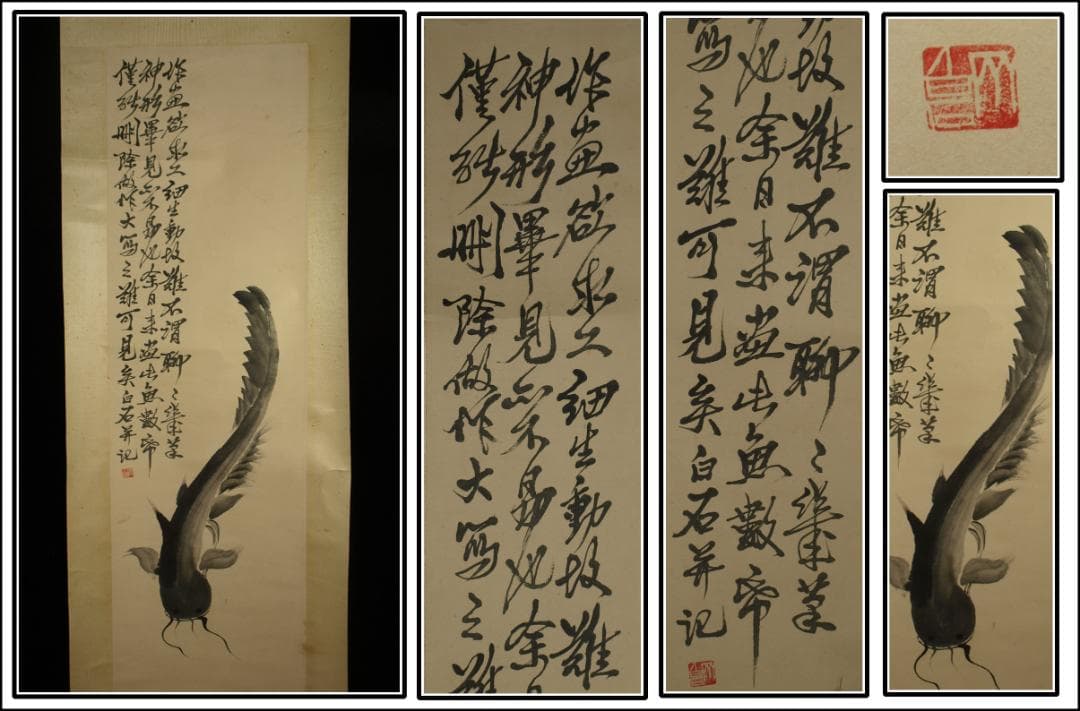 作畫欲求工細生動故難不謂聊〻幾筆
神形畢見亦不易也余日來畫出魚數帋
僅能刪除做作大寫之難可見矣白石并記
作畫欲求工細生動故難
神形畢見亦不易也余日
僅能刪除做作大寫之難
故難不謂聊〻幾筆
也余日來畫出魚數帋
寫之難可見矣白石并記
難不謂聊〻幾筆
余日來畫出魚數帋